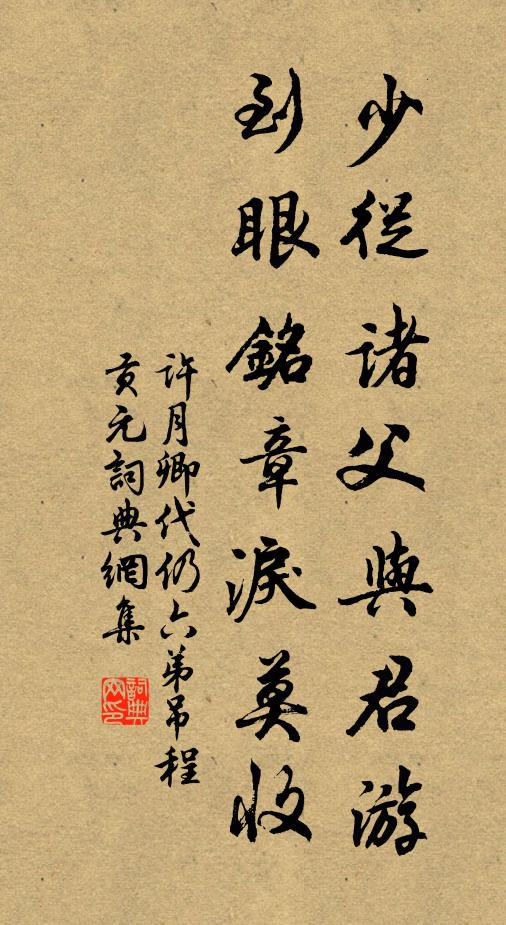 少從諸父與君游
到眼銘章淚莫收
許月卿代仍六弟吊程
貢元詞典網集
詞典
网印